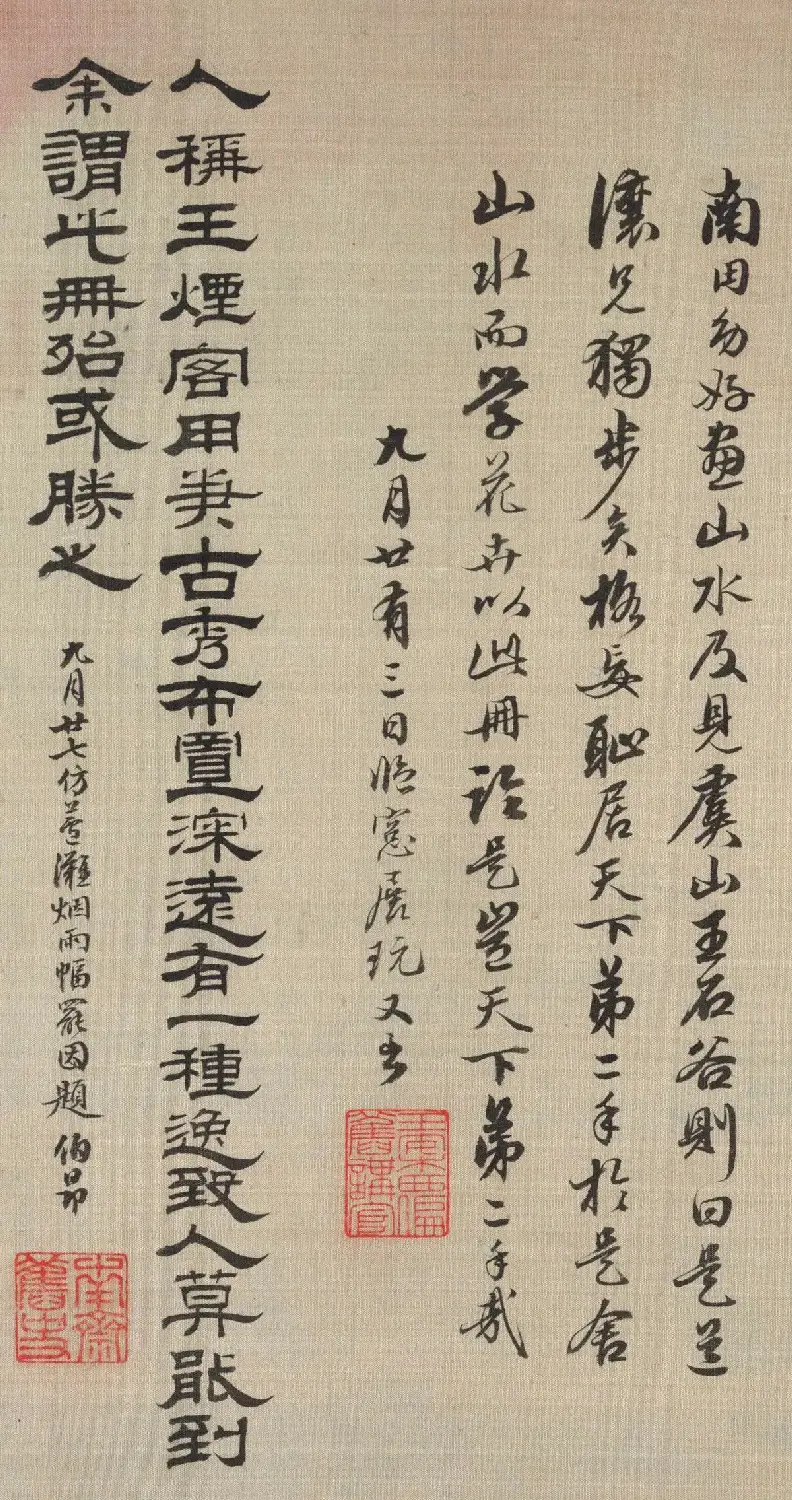 南田幼好畫山水及見虞山王石谷則曰是道
讓兄獨步矣格妄恥居天下第二手於是舍
山水而學花卉以此冊論是豈天下第二手哉
九月廿有三日臨窻展玩又書
舊講官
人稱王煙客用筆古秀布置深遠有一種逸致人莫能到
余謂此冊殆或勝之
九月廿七仿蘆灘烟雨幅罷因題 伯昂
南齋舊史